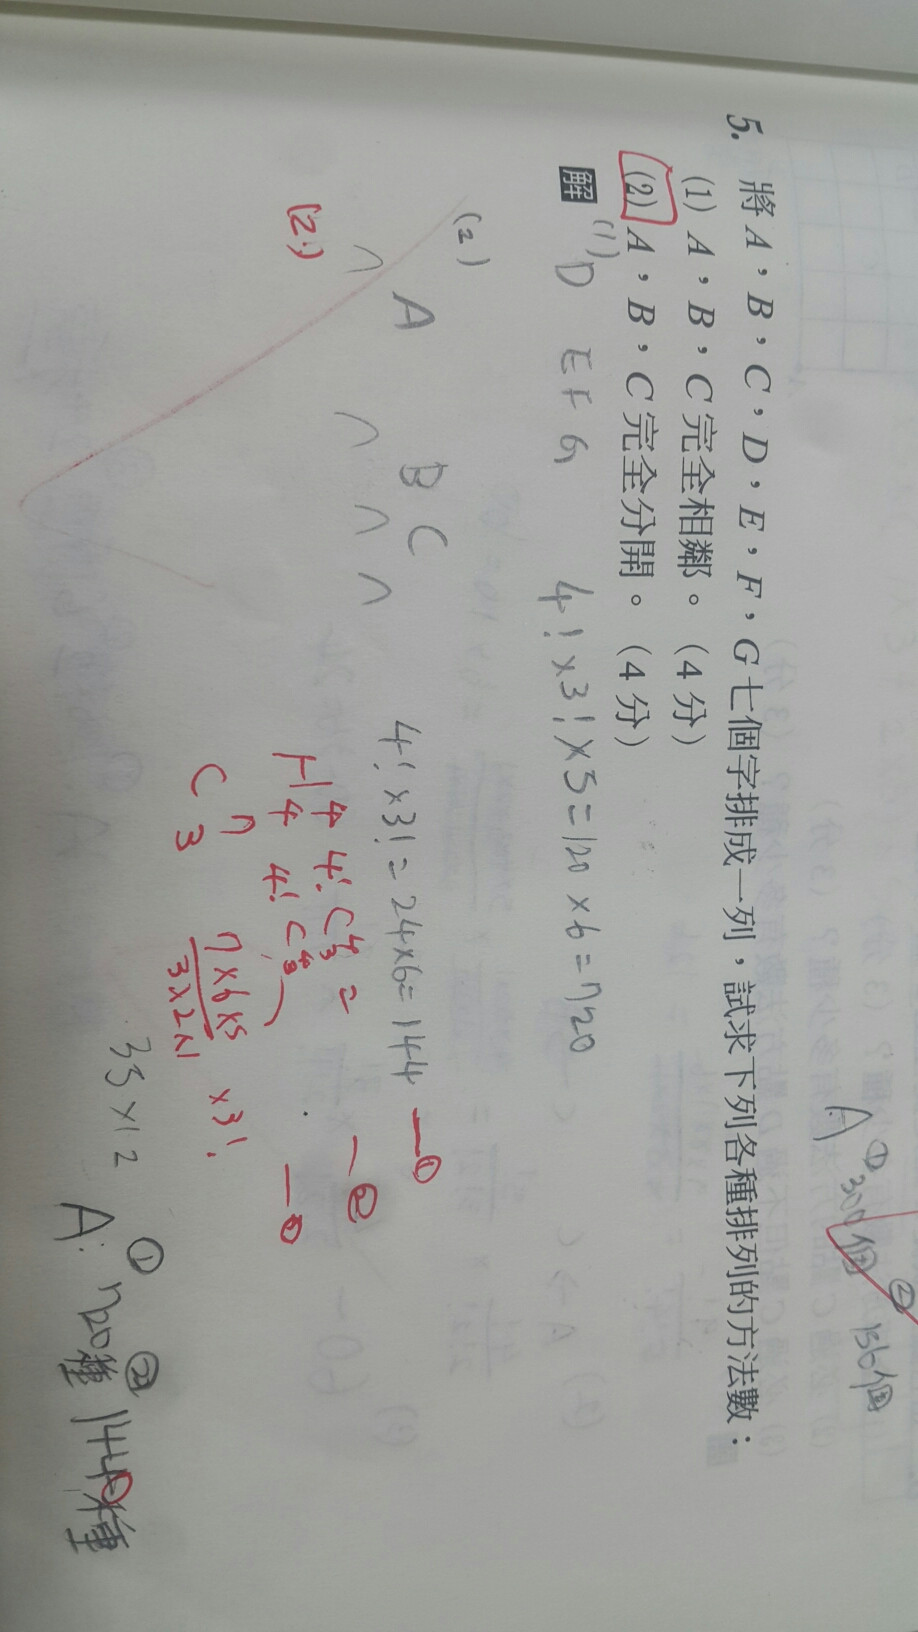 A ① 300個 ② 156個
5. 將A，B，C，D，E，F，G七個字排成一列，試求下列各種排列的方法數：
(1) A，B，C完全相鄰。（4分）
(2) A，B，C完全分開。（4分）
解 (1) D E F G 4!×3!×5=120×6=720
(2) A B C 4!×3!=24×6=144 —①
H 4 4 4! C 4 3 = —②
4! C 4 3 —①
(2)
C 7 3 7×6×5 / 3×2×1 ×3!
35×12
A: ① 720種 ② 1440種